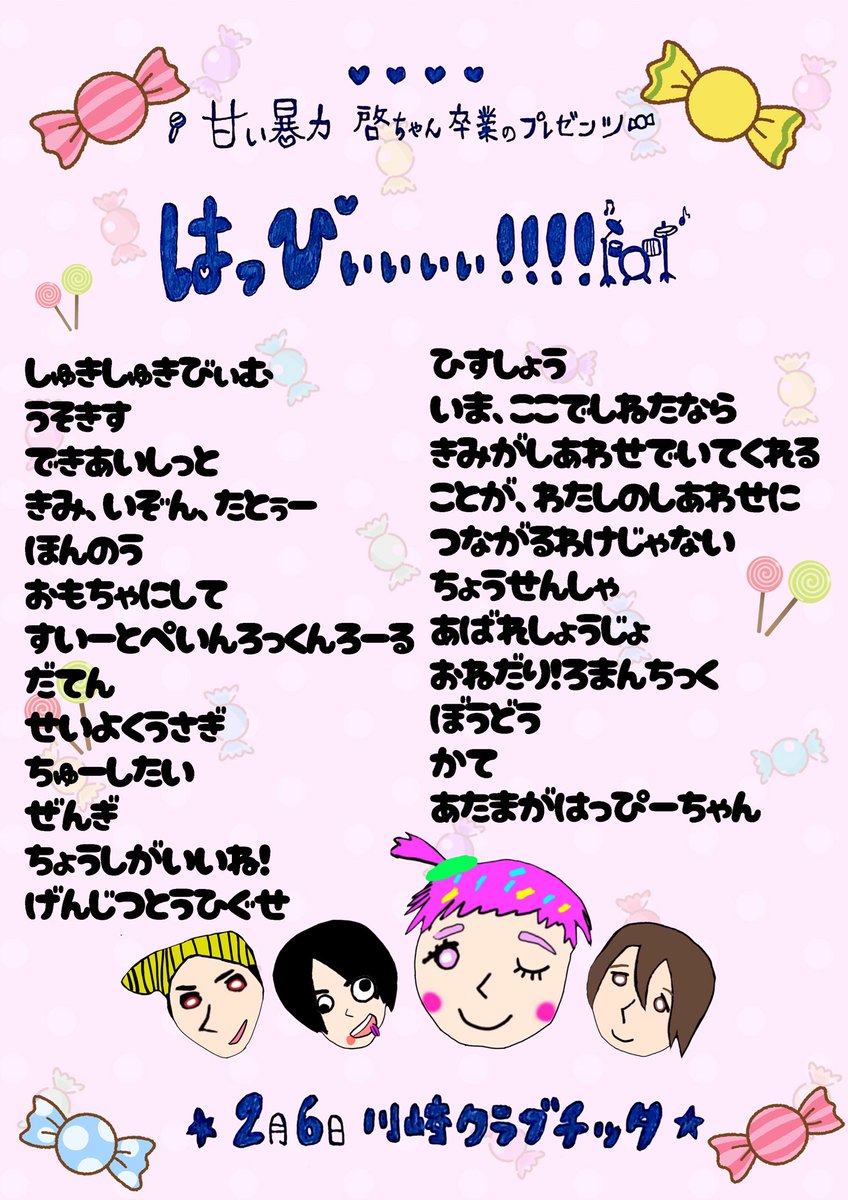 甘い暴力 啓ちゃん卒業のプレゼンツ
はっぴぃぃぃぃ!!!!
しゅきしゅきびぃむ
うそきす
できあいしっと
きみ、いぞん、たとぅー
ほんのう
おもちゃにして
すいーとぺいんろっくんろーる
だてん
せいよくうさぎ
ちゅーしたい
ぜんぎ
ちょうしがいいね!
げんじつとうひぐせ
ひすしょう
いま、ここでしねたなら
きみがしあわせでいてくれる
ことが、わたしのしあわせに
つながるわけじゃない
ちょうせんしゃ
あばれしょうじょ
おねだり!ろまんちっく
ぼうどう
かて
あたまがはっぴーちゃん
★2月6日 川崎クラブチッタ★